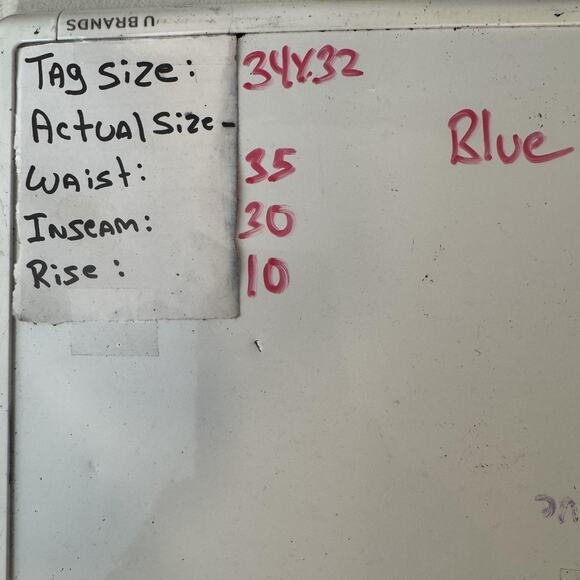 U BRANDS
Tag Size: 34x32
Actual Size-
Blue
Waist: 35
Inseam: 30
Rise: 10